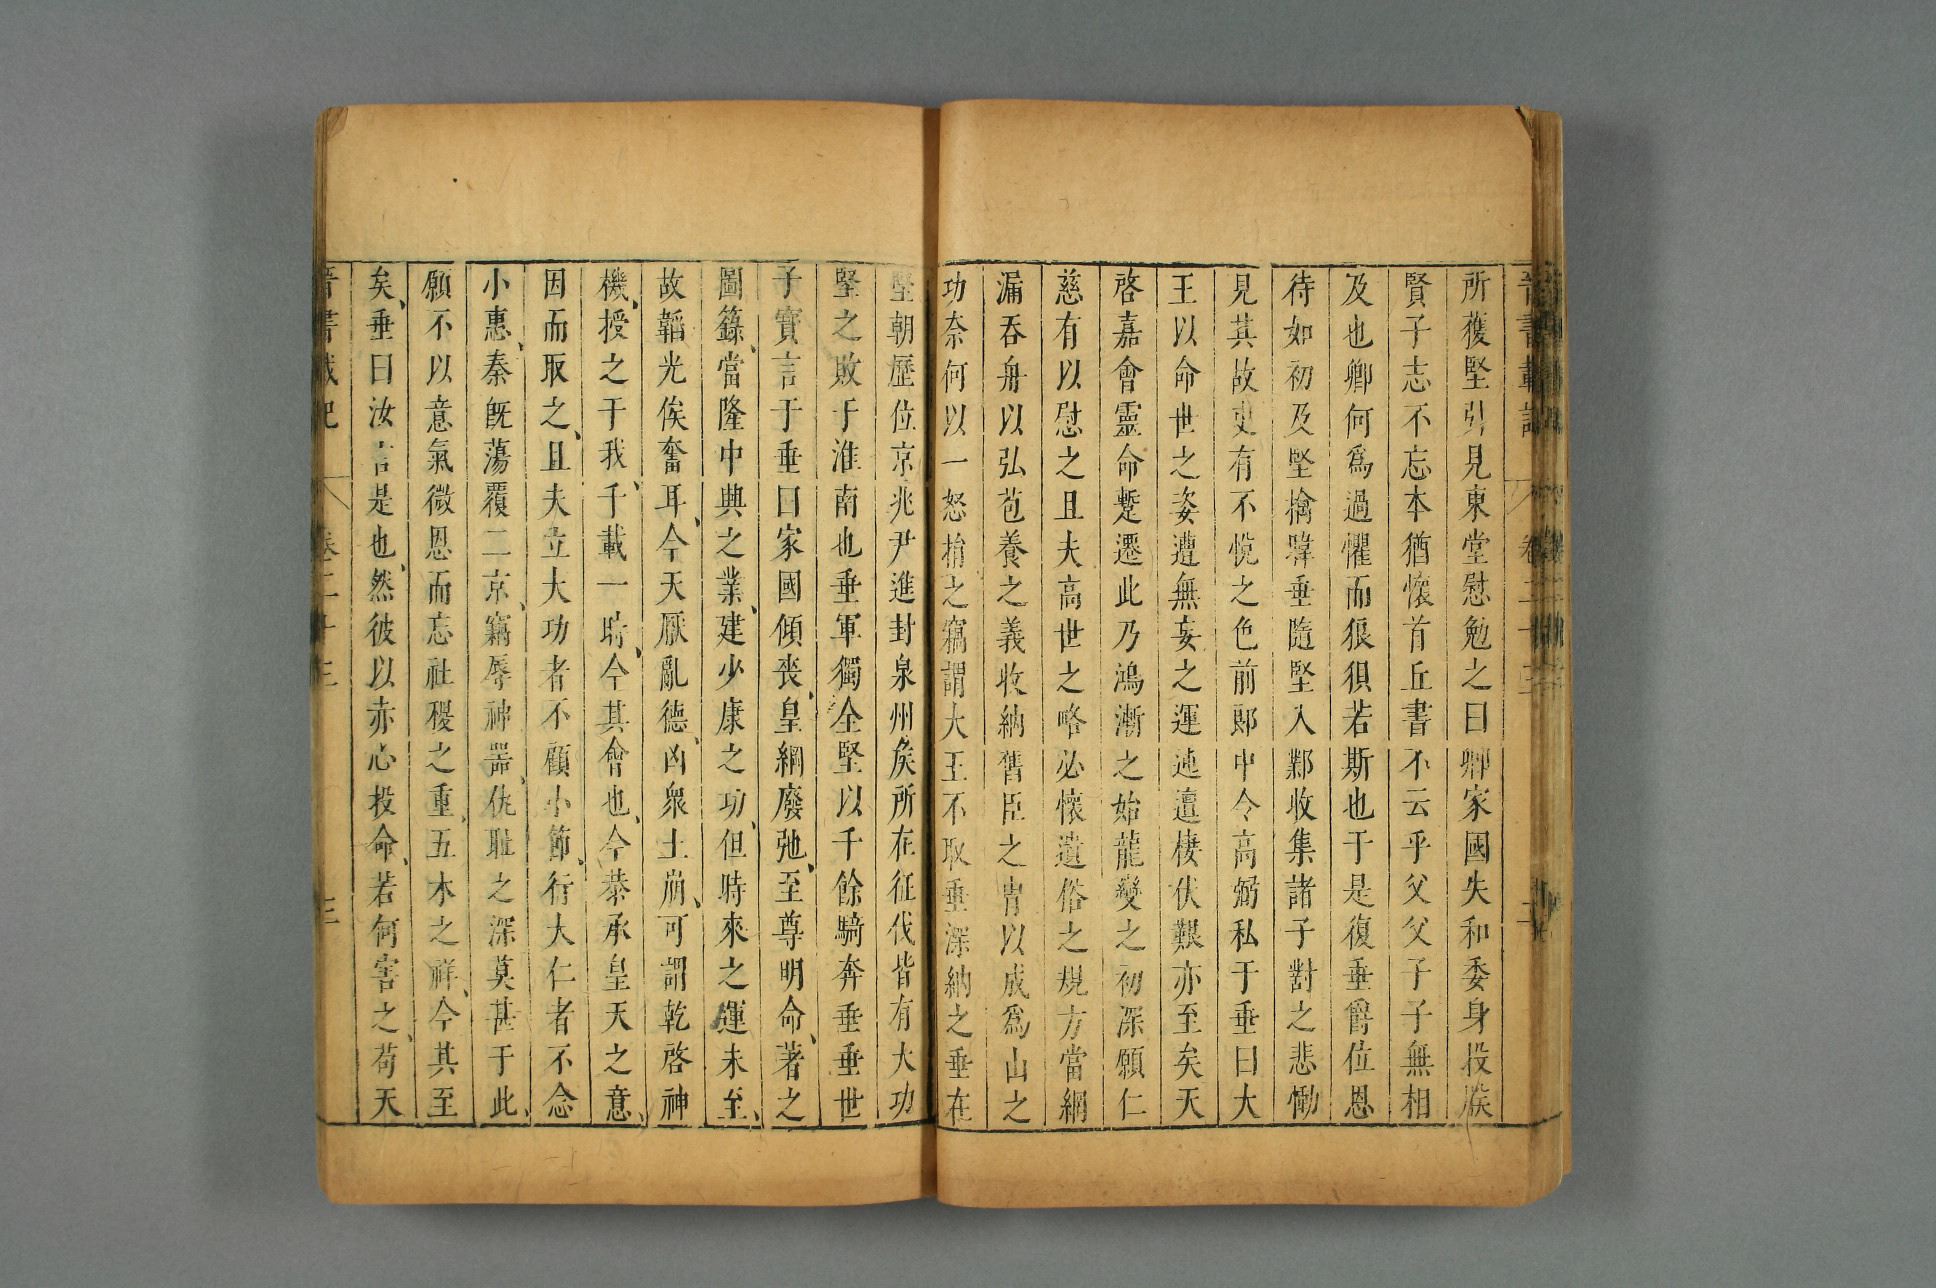 晉書載記 卷二十三 二
所獲堅引見東堂慰勉之曰卿家國失和委身投朕
賢子志不忘本猶懷首丘書不云乎父父子子無相
及也卿何爲過懼而狼狽若斯也于是復垂爵位恩
待如初及堅擒暐垂隨堅入鄴收集諸子對之悲慟
見其故吏有不悅之色前郎中令高弼私于垂曰大
王以命世之姿遭無妄之運迍邅棲伏艱亦至矣天
啓嘉會靈命蹔遷此乃鴻漸之始龍變之初深願仁
慈有以慰之且夫高世之略必懷遺俗之規方當網
漏吞舟以弘苞養之義收納舊臣之冑以成爲山之
功奈何以一怒捐之竊謂大王不取垂深納之垂在
堅朝歷位京兆尹進封泉州矦所在征伐皆有大功
堅之敗于淮南也垂軍獨全堅以千餘騎奔垂垂世
子寶言于垂曰家國傾喪、皇綱廢弛、至尊明命、著之
圖籙、當隆中興之業、建少康之功、但時來之運未至、
故韜光俟奮耳、今天厭亂德、凶衆土崩、可謂乾啓神
機、授之于我、千載一時、今其會也、今恭承皇天之意、
因而取之、且夫立大功者不顧小節、行大仁者不念
小惠、秦旣蕩覆二京、竊辱神器、仇耻之深莫甚于此、
願不以意氣微恩而忘社稷之重、五木之祥、今其至
矣、垂曰汝言是也、然彼以赤心投命、若何害之、苟天
晉書載記 卷二十三 三